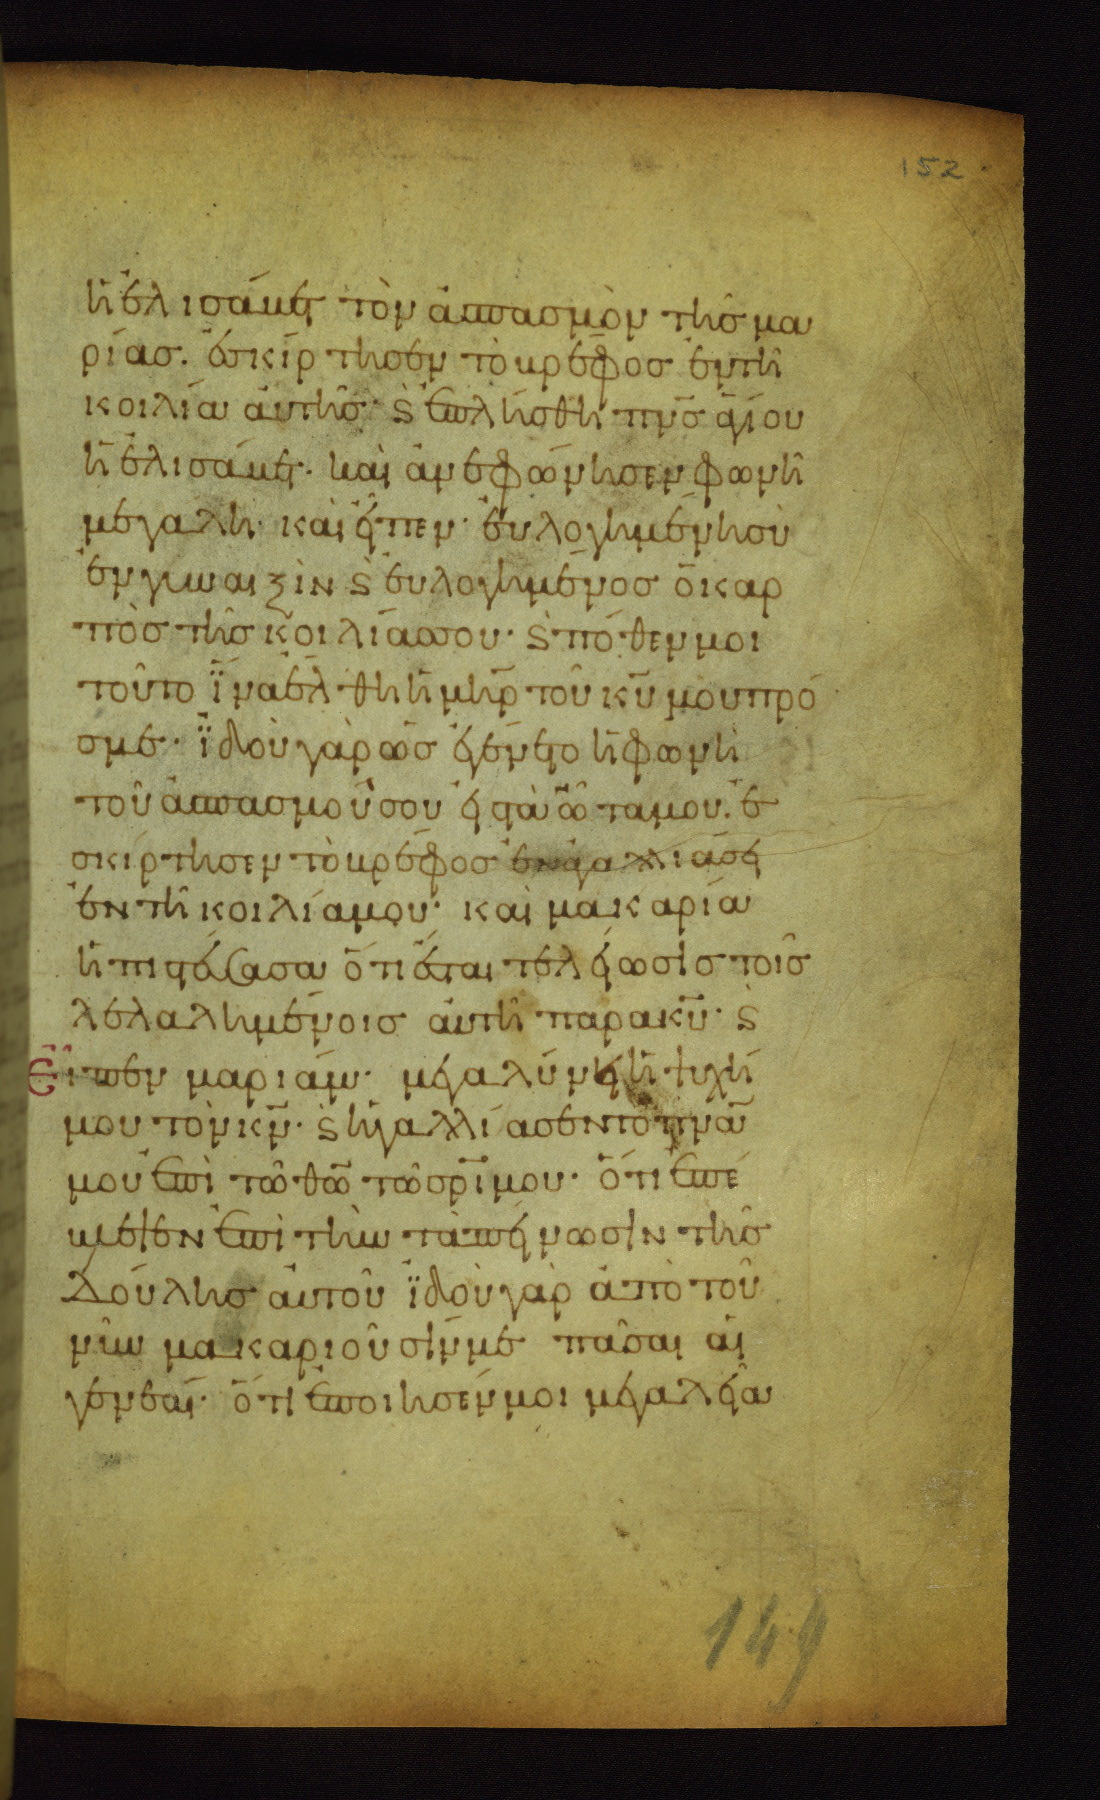 152
ἡ ἐλισάβετ τὸν ἀσπασμὸν τῆς μα
ρίας. ἐσκίρτησεν τὸ βρέφος ἐν τῆ
κοιλία αὐτῆς· ϗ ἐπλήσθη πνς ἁγίου
ἡ ἐλισάβετ. καὶ ἀνεφώνησεν φωνῆ
μεγάλη· καὶ εἶπεν· εὐλογημένη σὺ
ἐν γυναιξὶν ϗ εὐλογημένος ὁ καρ
πὸς τῆς κοιλίας σου· ϗ πόθεν μοι
τοῦτο ἵνα ἔλθη ἡ μηρ τοῦ κυ μου πρό
σμε· ἰδοὺ γὰρ ὡς ἐγένετο ἡ φωνὴ
τοῦ ἀσπασμοῦ σου εἰς τὰ ὦτα μου. ἐ
σκίρτησεν τὸ βρέφος ἐν ἀγαλλιάσει
ἐν τῆ κοιλία μου· καὶ μακαρία
ἡ πιστεύσασα ὅτι ἔσται τελείωσις τοῖς
λελαλημένοις αὐτῆ παρὰ κυ· ϗ
εἶπεν μαριάμ· μεγαλύνει ἡ ψυχή
μου τὸν κν· ϗ ἠγαλλίασεν τὸ πνα
μου ἐπὶ τῶ θω τῶ σρι μου· ὅτι ἐπέ
βλεψεν ἐπὶ τὴν ταπείνωσιν τῆς
δούλης αὐτοῦ ἰδοὺ γὰρ ἀπὸ τοῦ
νῦν μακαριοῦσίν με πᾶσαι αἱ
γενεαί· ὅτι ἐποίησέν μοι μεγαλεῖα
149